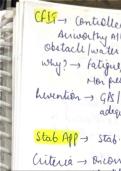 CFIT → Controlled
Airworthy Al
Obstacle/water
Why? → fatigue,
Mon pe
Prevention → GPS/
adequ
Stab App → Stab
Criteria →